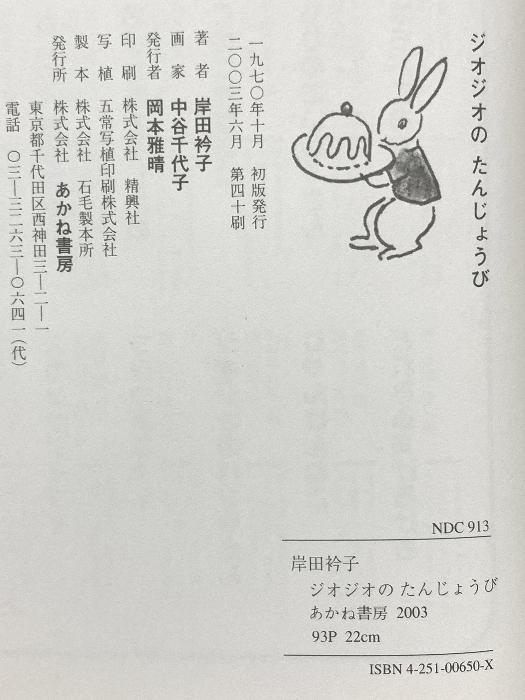 ジオジオの たんじょうび
一九七〇年十月 初版発行
二〇〇三年六月 第四十刷
著者 岸田衿子
画家 中谷千代子
発行者 岡本雅晴
印刷 株式会社 精興社
写植 五常写植印刷株式会社
製本 株式会社 石毛製本所
発行所 株式会社 あかね書房
東京都千代田区西神田三―二―一
電話 〇三―三二六三―〇六四一(代)
NDC 913
岸田衿子
ジオジオの たんじょうび
あかね書房 2003
93P 22cm
ISBN 4-251-00650-X